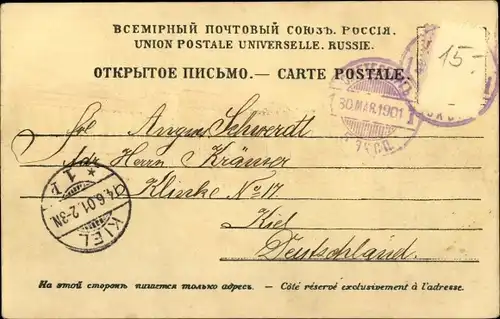 ВСЕМІРНЫЙ ПОЧТОВЫЙ СОЮЗЪ. РОССІЯ.
UNION POSTALE UNIVERSELLE. RUSSIE.
ОТКРЫТОЕ ПИСЬМО.— CARTE POSTALE.
15.-
30 MAR 1901
Schwerdt
Herrn Krämer
Klinke No 17
Kiel
Deutschland.
* 1 P
4.6.01.2-3N
KIEL
На этой сторонѣ пишется только адресъ. — Côté réservé exclusivement à l'adresse.